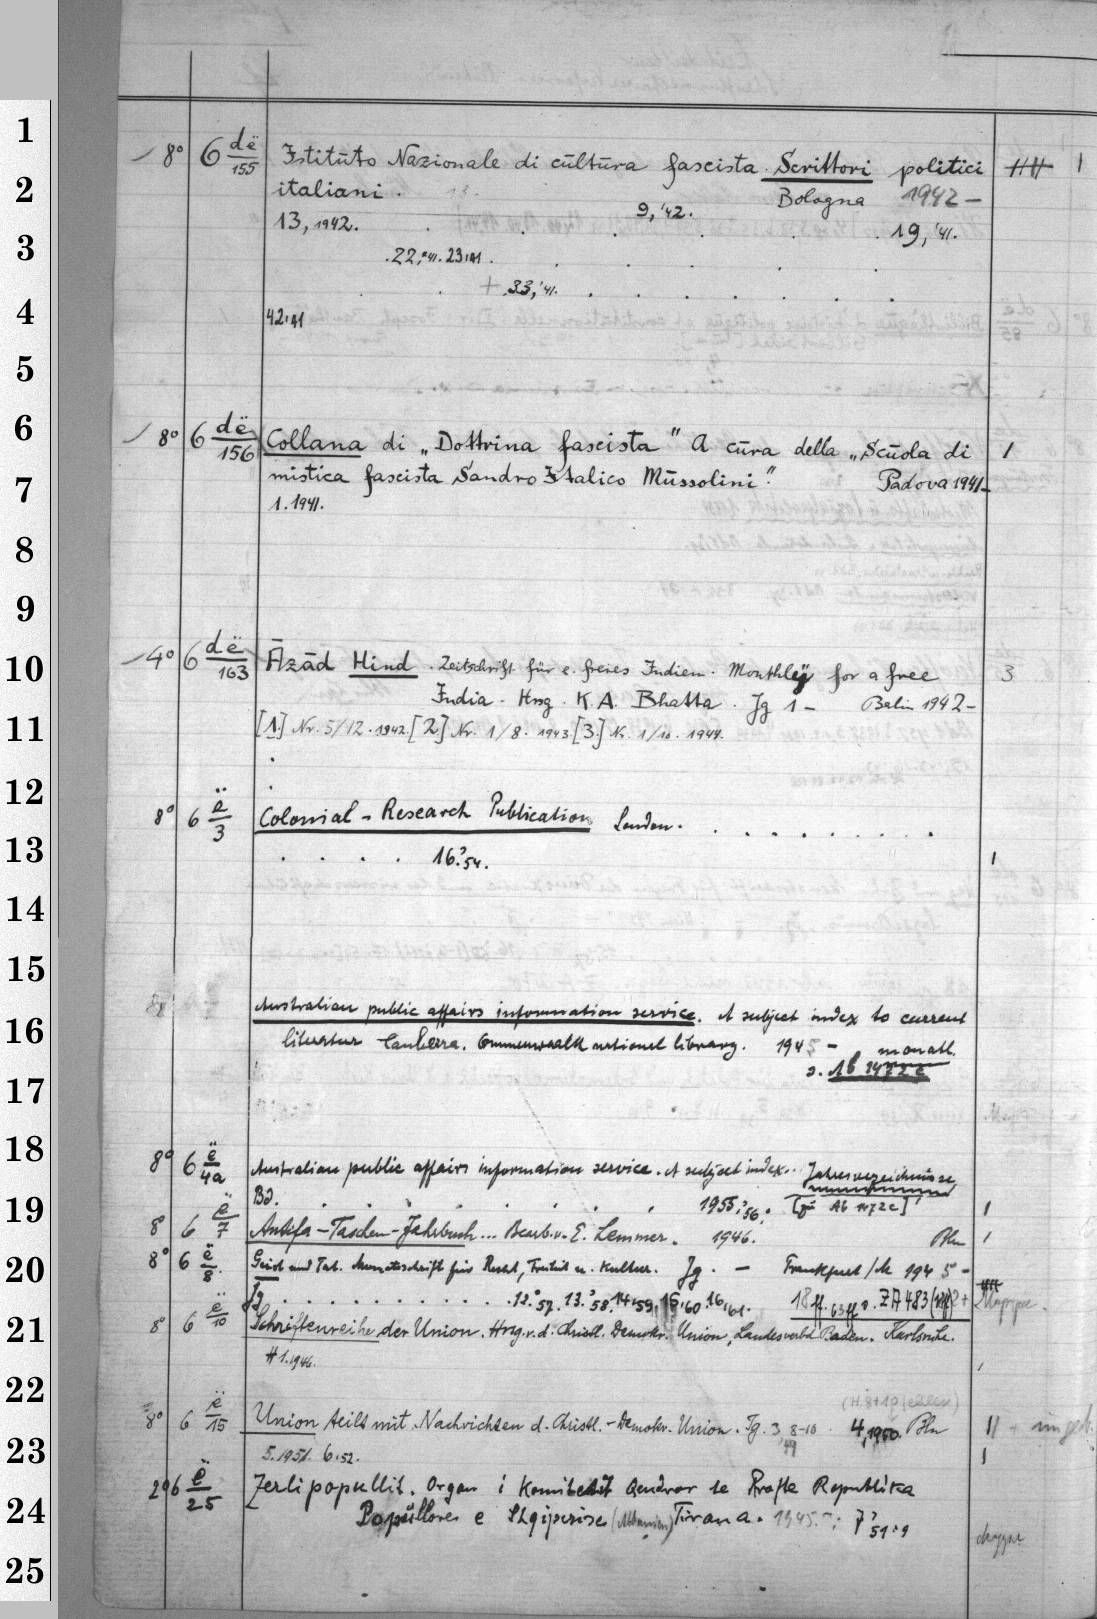 1
2
3
4
5
6
7
8
9
10
11
12
13
14
15
16
17
18
19
20
21
22
23
24
25
8° 6 dë/155 Istituto Nazionale di cūltūra fascista Scrittori politici 1
italiani. Bologna 1942 –
13, 1942. 9, '42. 19, '41.
22, '41. 23, 41.
+ 33, '41.
42, 41
8° 6 dë/156 Collana di „Dottrina fascista" A cūra della „Scūola di 1
mistica fascista Sandro Italico Mūssolini." Padova 1941–
1. 1941.
4° 6 dë/163 Āzād Hind. Zeitschrift für e. freies Indien. Monthly for a free 3
India. Hrsg. K. A. Bhatta. Jg 1 – Berlin 1942–
[1] Nr. 5/12. 1942. [2] Nr. 1/8. 1943. [3] Nr. 1/10. 1944.
8° 6 ë/3 Colonial-Research Publication London.
16, '54. 1
Australian public affairs information service. A subject index to current
literatur Canberra. Commonwealth national library. 1945 – monatl.
s. Ab 1472 c
8° 6 ë/4a Australian public affairs information service. A subject index. Jahresverzeichnisse
Bd. 1955, '56, [Ab 1472c] 1
8° 6 ë/7 Antifa-Taschen-Jahrbuch... Bearb. v. E. Lemmer. 1946. Bln 1
8° 6 ë/8. Geist und Tat. Monatsschrift für Recht, Freiheit u. Kultur. Jg. – Frankfurt/M 1945 –
Jg 12, '57. 13, '58, 14, '59, 15, '60, 16, '61. 18ff. 63ff s. ZA 483
8° 6 ë/10 Schriftenreihe der Union. Hrsg. v. d. Christl. Demokr. Union, Landesverbd Baden. Karlsruhe.
H 1. 1946. 1
8° 6 ë/15 Union teilt mit. Nachrichten d. Christl.-Demokr. Union. Jg. 3, 8-10 '49 4, 1950. Bln
5. 1951. 6, 52. 1
2° 6 ë/25 Zeri i popullit. Organ i Komitetit Qendror te Partise Republika
Popullore e Shqiperise (Albanien) Tirana. 1945. –: 7, 51